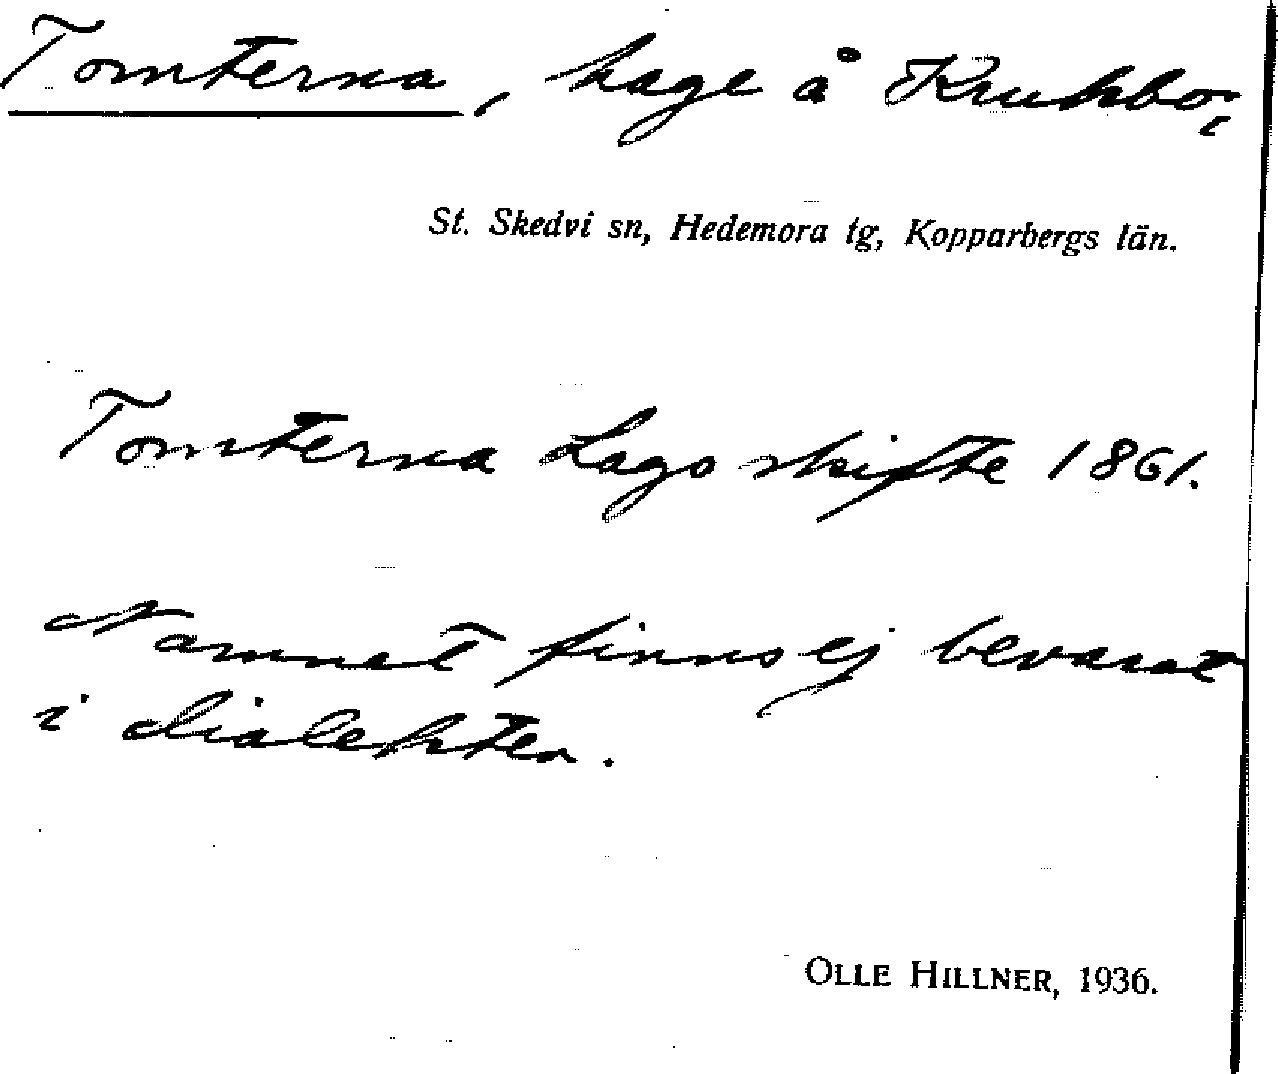 Tomterna, hage å Krukbo,
St. Skedvi sn, Hedemora tg, Kopparbergs län.
Tomterna Laga skifte 1861.
Namnet finns ej bevarat
i dialekten.
OLLE HILLNER, 1936.